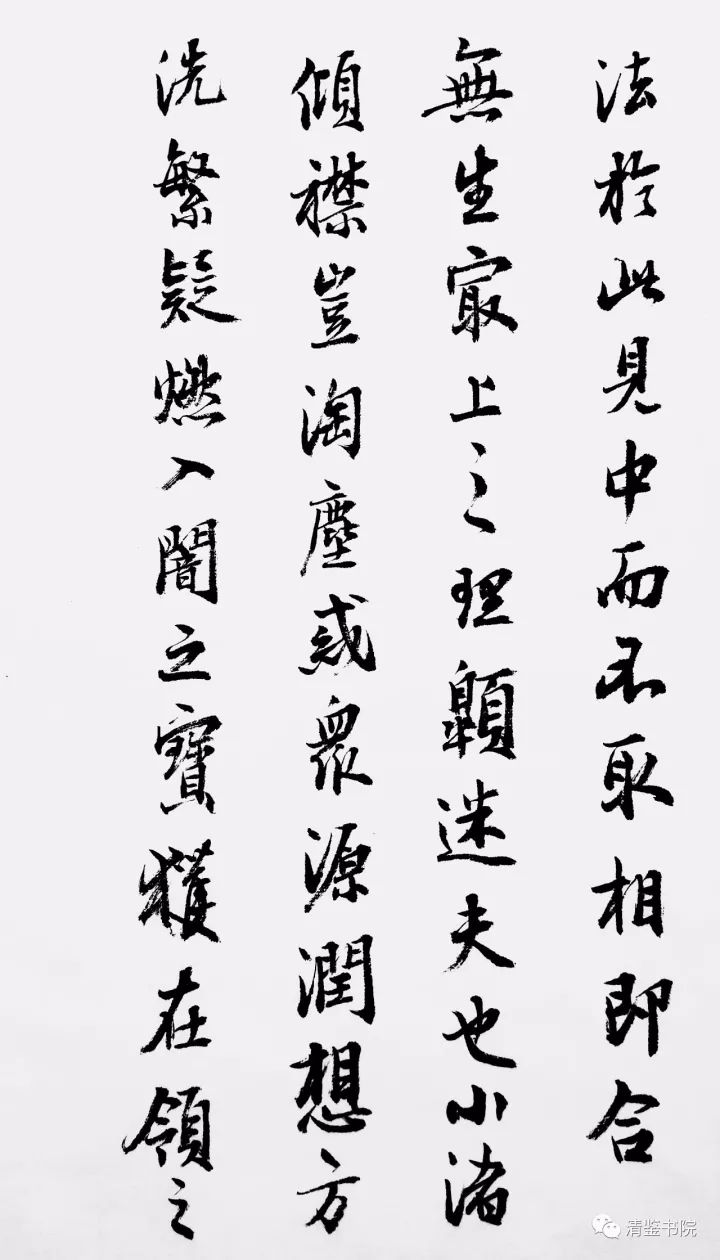 法於此見中而不取相即合
無生最上之理顯迷夫也小渚
傾襟豈淘塵惑眾源潤想方
洗繁疑燃入闇之寶獲在領之
清鉴书院